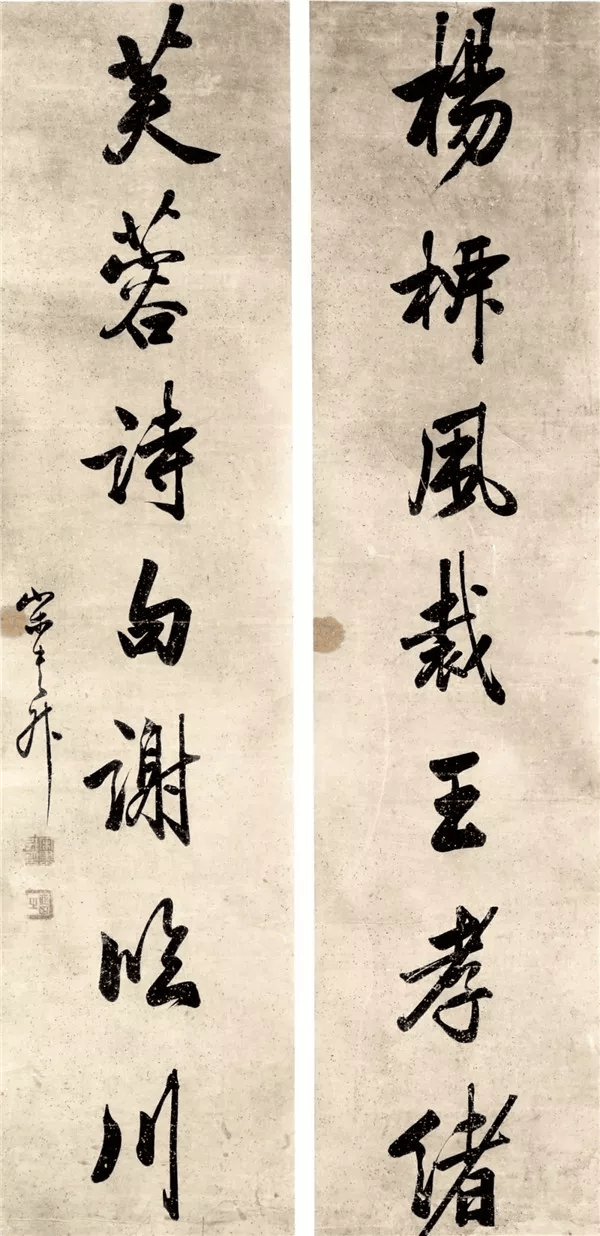 楊柳風裁王孝緒
芙蓉詩句謝臨川